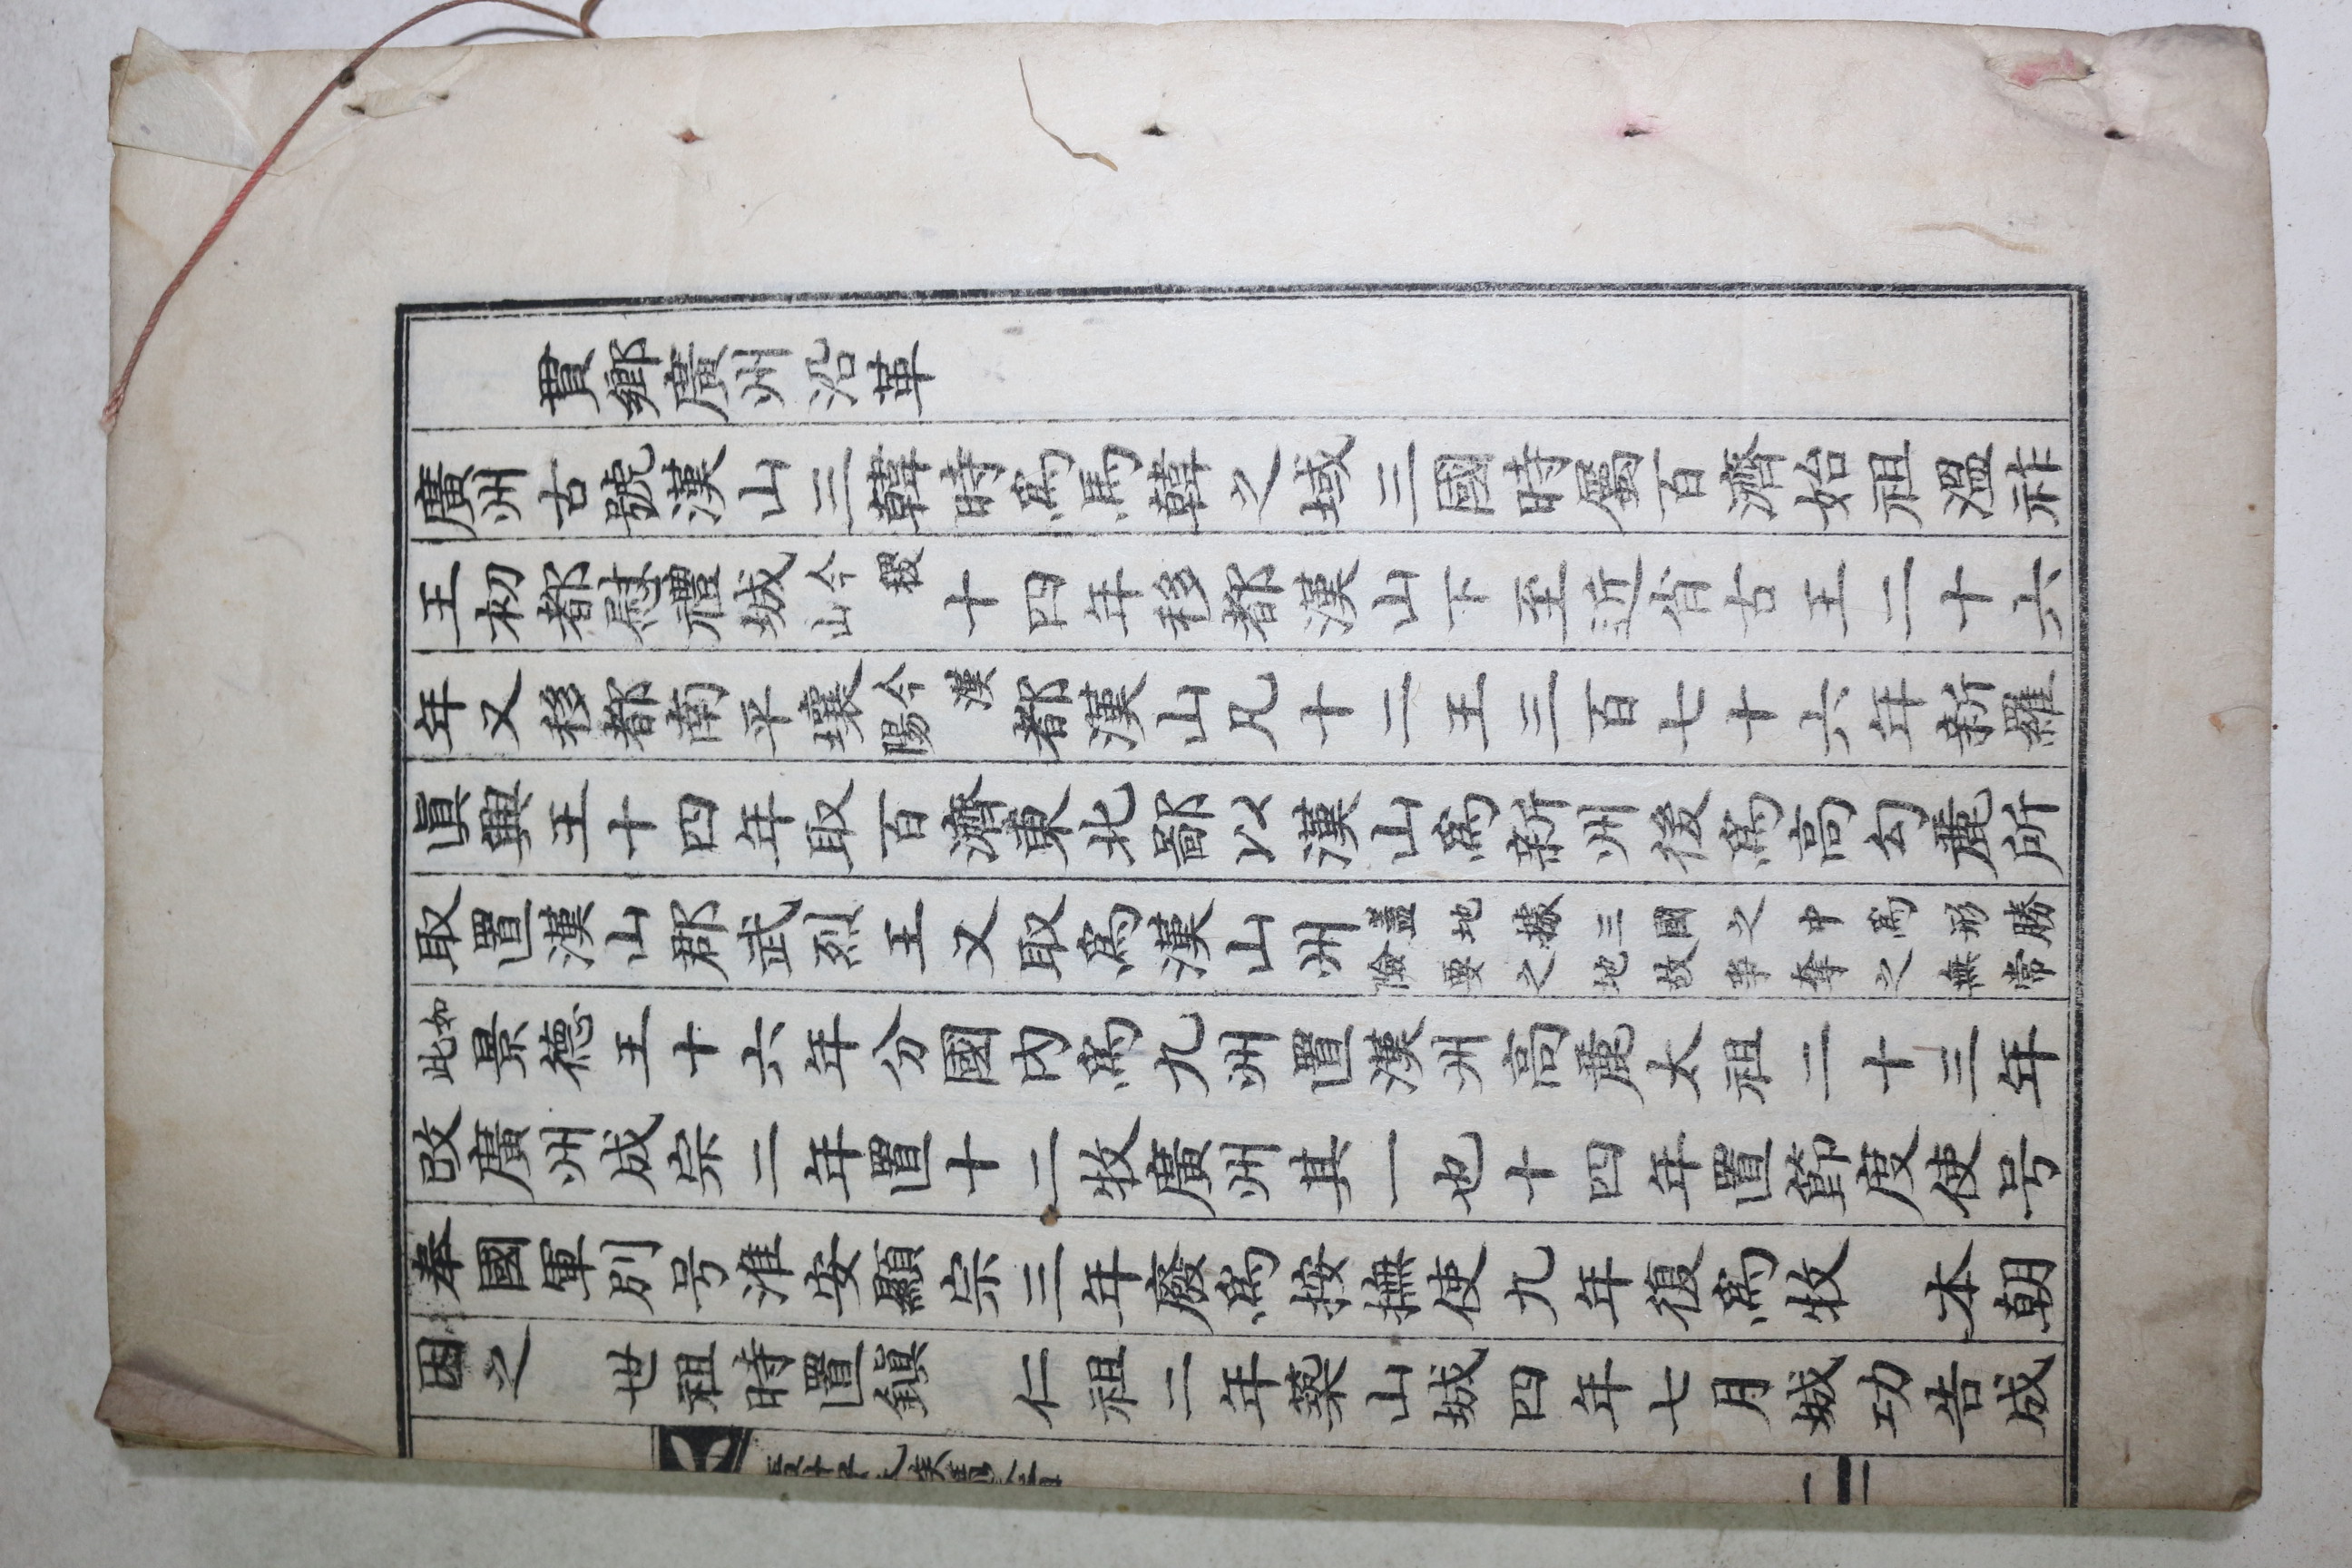 貫鄕廣州沿革
廣州古號漢山三韓時爲馬韓之域三國時屬百濟始祖溫祚
王初都慰禮城今稷山十四年移都漢山下至近肖古王二十六
年又移都南平壤今漢陽都漢山凡十二王三百七十六年新羅
眞興王十四年取百濟東北鄙以漢山爲新州後爲高勾麗所
取置漢山郡武烈王又取爲漢山州盖地據三國之中爲形勝險要之地故爭奪之無常
如此景德王十六年分國內爲九州置漢州高麗太祖二十三年
改廣州成宗二年置十二牧廣州其一也十四年置節度使号
奉國軍別号淮安顯宗三年廢爲按撫使九年復爲牧 本朝
因之 世祖時置鎭 仁祖二年築山城四年七月城功告成